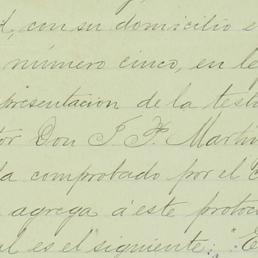 , con su domicilio e
número cinco, en le
presentacion de la test
tor Don J. F. Martin
da comprobado por el c
agrega á este protoco
al es el siguiente: "E